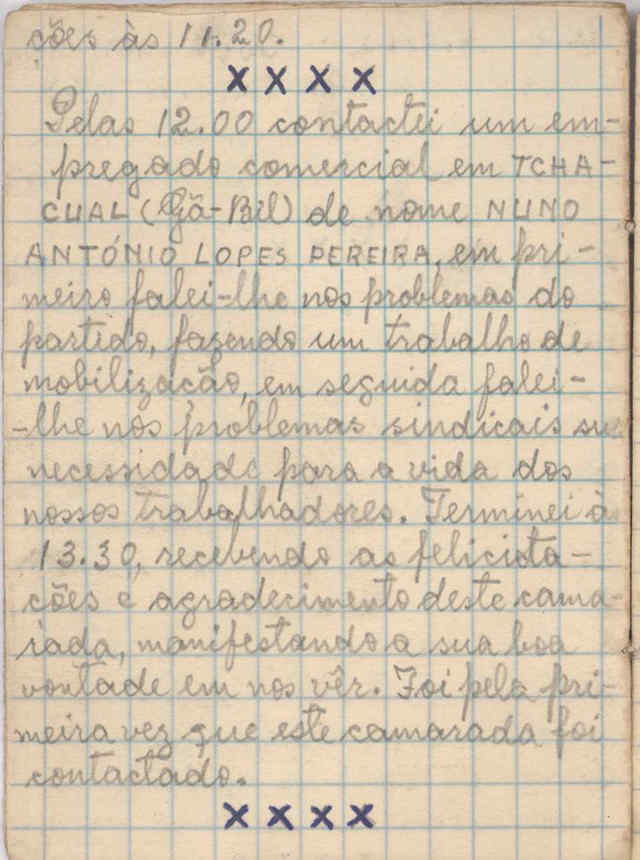 ções às 11.20.
x x x x
Pelas 12.00 contactei um em-
pregado comercial em TCHA-
CUAL (Gã-Bil) de nome NUNO
ANTÓNIO LOPES PEREIRA, em pri-
meiro falei-lhe nos problemas do
partido, fazendo um trabalho de
mobilização, em seguida falei-
-lhe nos problemas sindicais su
necessidade para a vida dos
nossos trabalhadores. Terminei à
13.30, recebendo as felicita-
ções e agradecimento deste cama-
rada, manifestando a sua boa
vontade em nos vêr. Foi pela pri-
meira vez que este camarada foi
contactado.
x x x x